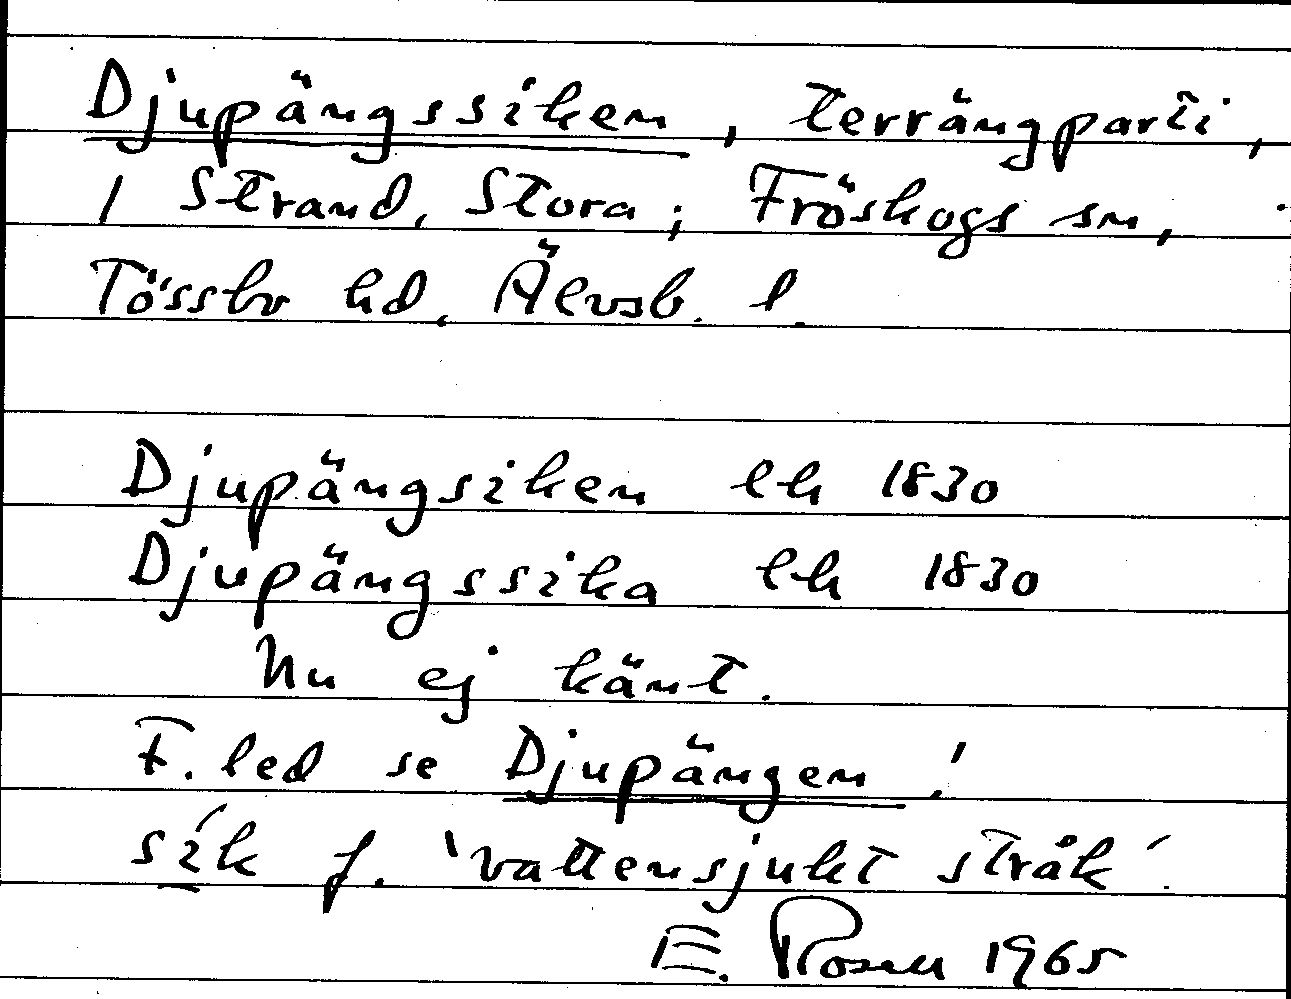 Djupängssiken, terrängparti,
1 Strand, Stora; Fröskogs sn,
Tössbo hd. Älvsb. l.
Djupängsiken lh 1830
Djupängssika lh 1830
Nu ej känt.
F. led se Djupängen!
sík f. 'vattensjukt stråk'.
E. Rosell 1965